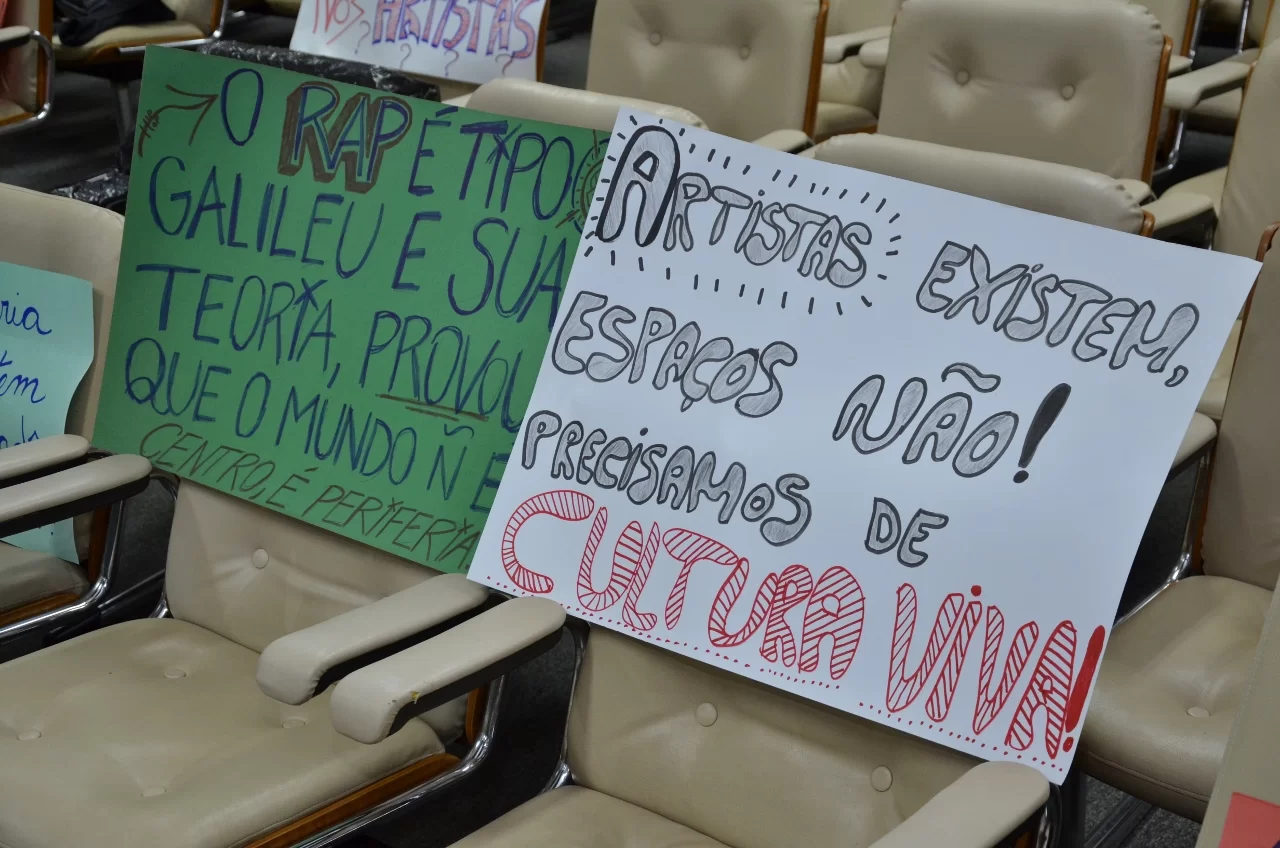 ARTISTAS
O RAP É TIPO
GALILEU E SUA
TEORIA, PROVOU
QUE O MUNDO Ñ E
CENTRO, É PERIFERIA
ARTISTAS EXISTEM,
ESPAÇOS NÃO!
PRECISAMOS DE
CULTURA VIVA!
ria
têm